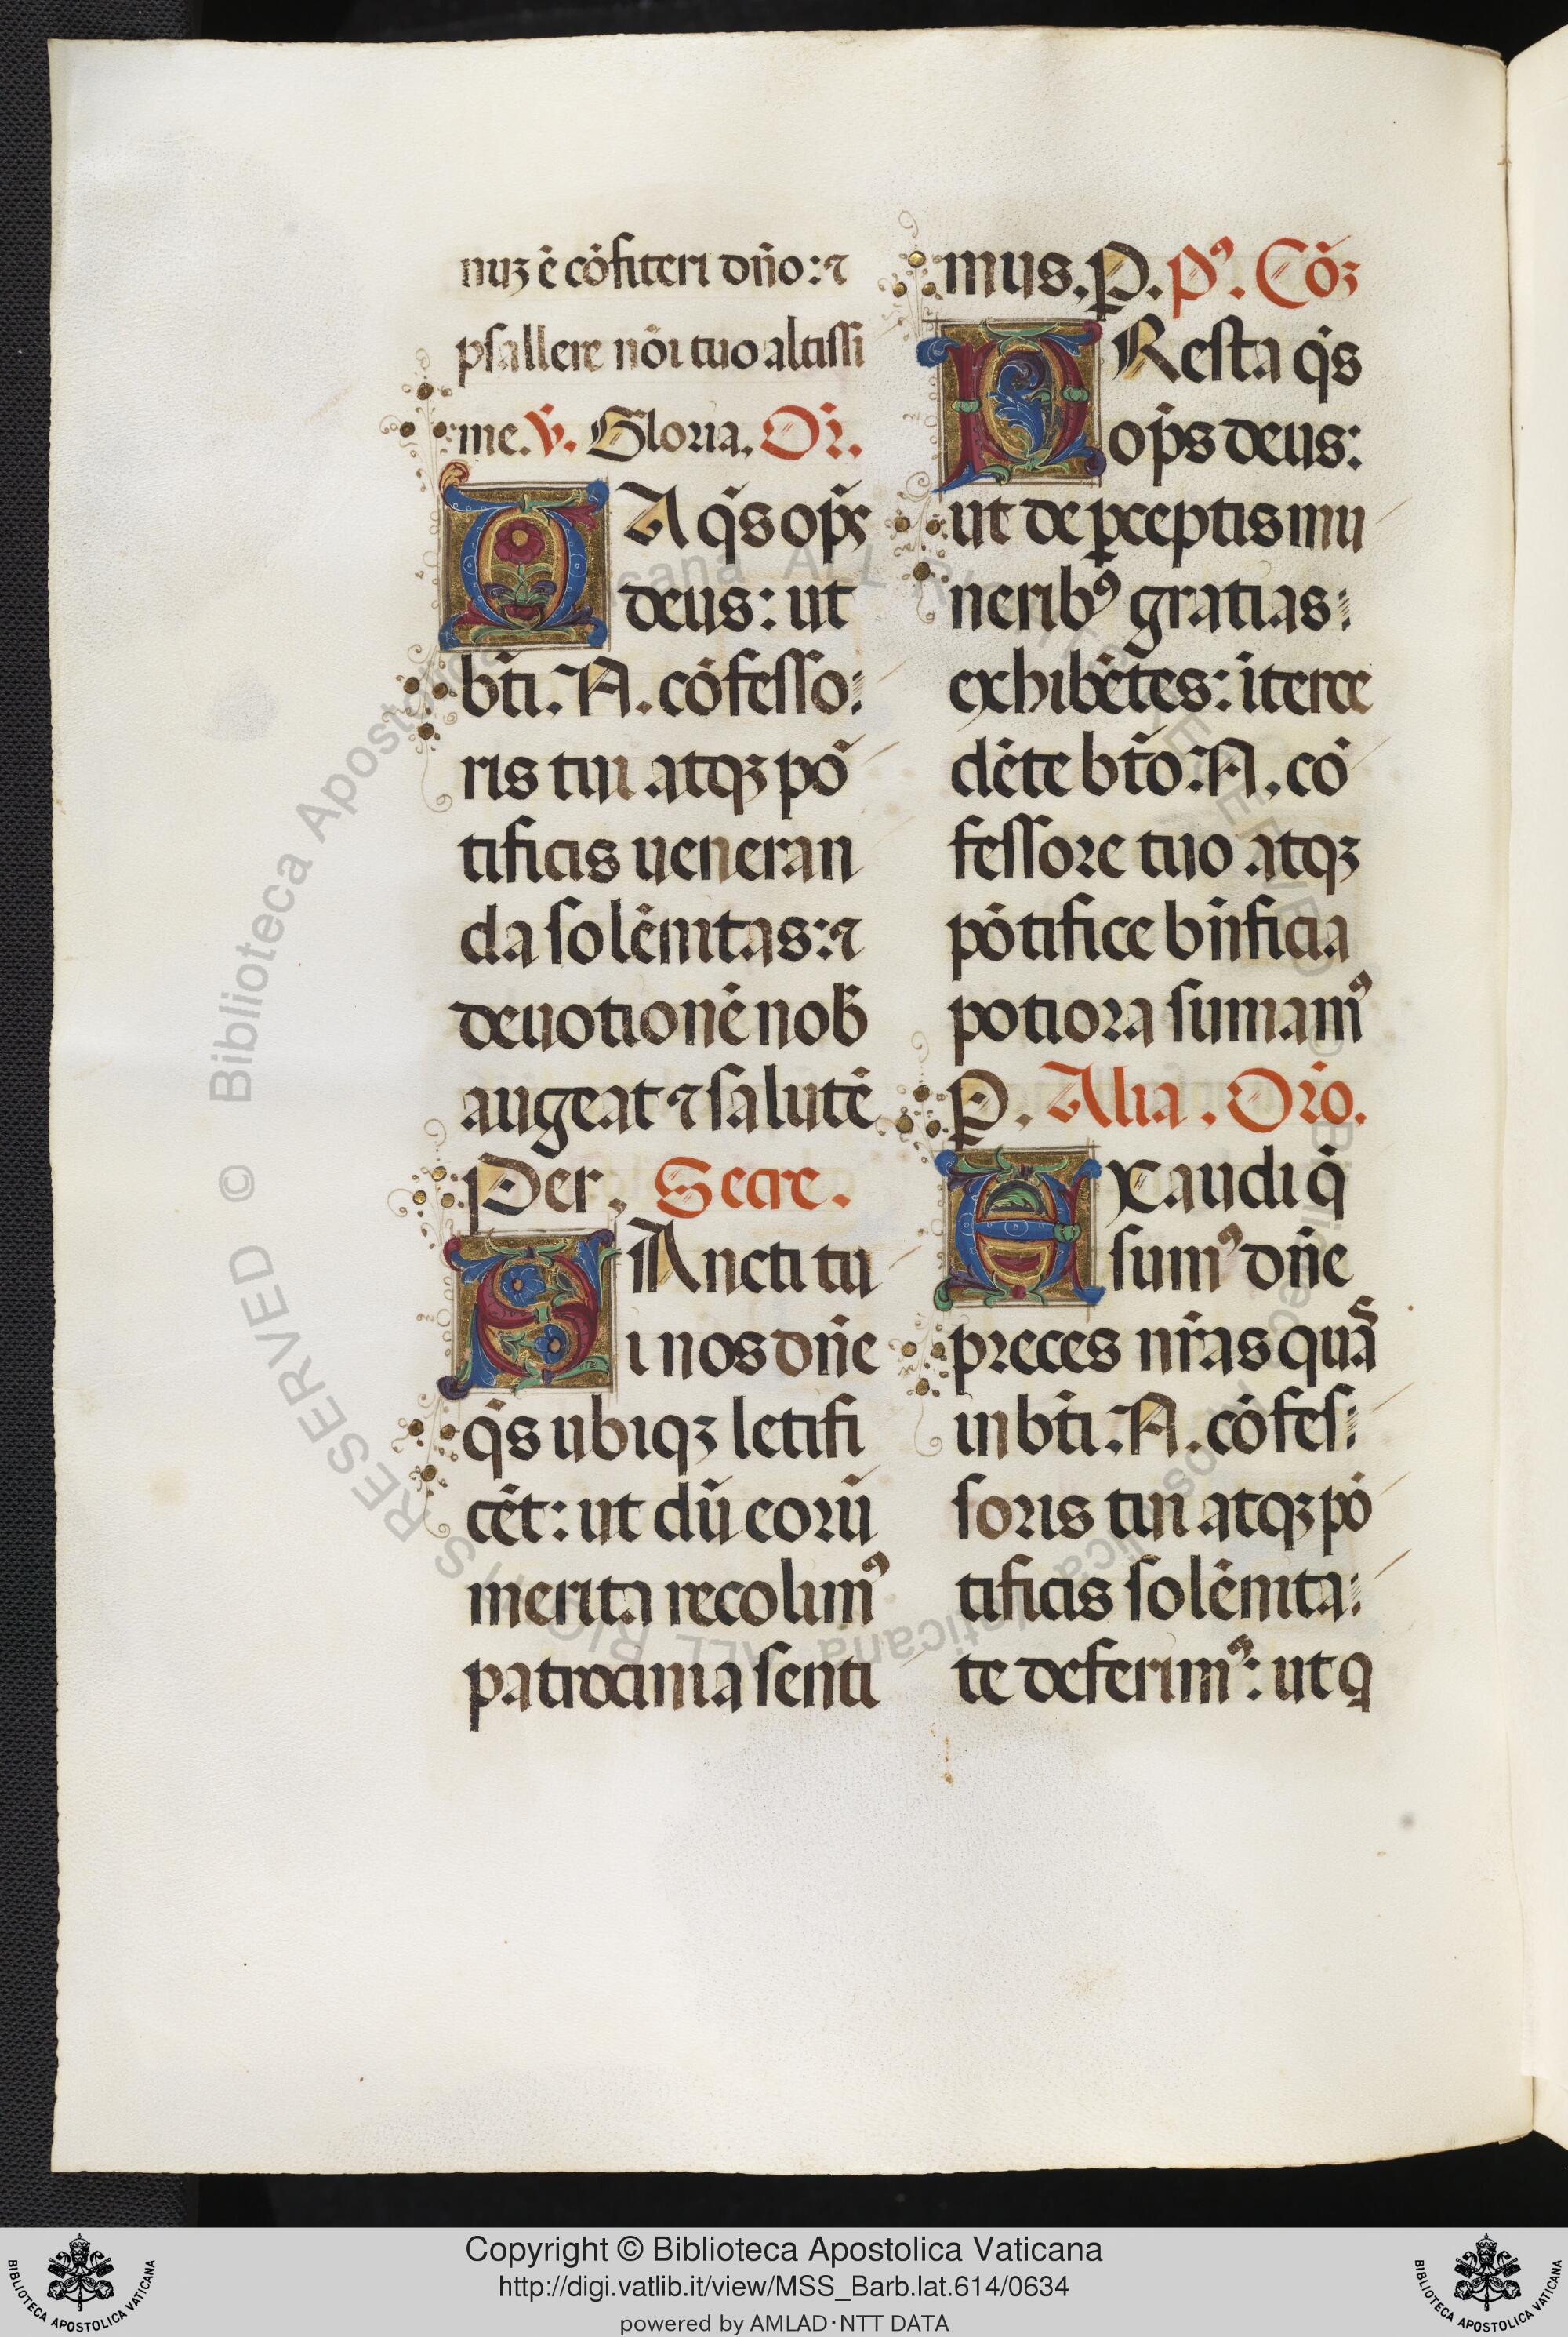 nuꝫ ē cōfiteri dn̄o: ⁊
psallere nōi tuo altissi
me. ℣. Gloria. Or̄.
DA q̄s op̄s
deus: ut
bt̄i. N. cōfesso⸗
ris tui atqꝫ pō
tificis ueneran
da solēnitas: ⁊
deuotionē nob̄
augeat ⁊ salutē
Per. Secre.
SAncti tu
i nos dn̄e
q̄s ubiqꝫ letifi
cēt: ut dū eorū
merita recolimꝰ
patrocinia senti
mus. P. Pꝰ. Cōꝫ
PResta q̄s
op̄s deus:
ut de ꝑceptis mu
neribꝰ gratias⸗
exhibētes: īterce
dēte bt̄o. N. cō
fessore tuo atqꝫ
pōtifice bn̄ficia
potiora sumamꝰ
P. Alia. Or̄o.
EXaudi q̄
sumꝰ dn̄e
preces nr̄as quās
in bt̄i. N. cōfes⸗
soris tui atqꝫ pō
tificis solēnita⸗
te deferimꝰ: ut q
Copyright © Biblioteca Apostolica Vaticana
http://digi.vatlib.it/view/MSS_Barb.lat.614/0634
powered by AMLAD·NTT DATA
BIBLIOTECA APOSTOLICA VATICANA
BIBLIOTECA APOSTOLICA VATICANA
© Biblioteca Apostolica Vaticana ALL RIGHTS RESERVED